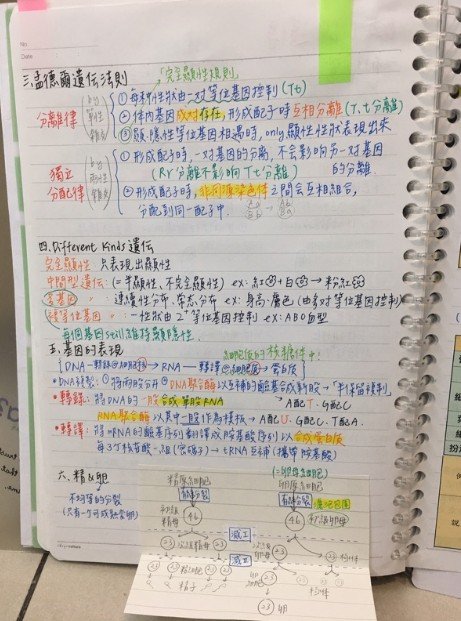 No.
Date
三.孟德爾遺傳法則 「完全顯性規則」
分離律
①每種性狀由一對等位基因控制(Tt)
②體內基因成對存在,形成配子時互相分離(T、t分離)
③顯、隱性等位基因相遇時,only顯性性狀表現出來
獨立
分配律
①形成配子時,一對基因的分離,不會影響另一對基因的分離.
(Rr分離不影響Tt分離)
②形成配子時,非同源染色體之間會互相組合,
分配到同一配子中.
四.Different Kinds遺傳
完全顯性 只表現出顯性
中間型遺傳:(=半顯性、不完全顯性) ex:紅+白→粉紅
多基因 〃:連續性分布、常態分布 ex:身高、膚色(由多對等位基因控制)
複等位基因〃:一性狀由2⁺等位基因控制 ex:ABO血型
每個基因still維持顯隱性.
五.基因的表現
DNA—轉錄→RNA—轉譯→蛋白質
•DNA複製:①將兩股分開②DNA聚合酶以互補的鹼基合成新股→半保留複製
A配T、G配C
•轉錄:將DNA的一股合成單股RNA
RNA聚合酶以其中一股作為模板→A配U、G配C、T配A.
•轉譯:將mRNA的鹼基序列翻譯成胺基酸序列以合成蛋白質
每3個核苷酸一組(密碼子)→tRNA互補(攜帶胺基酸)
六.精&卵
不均等的分裂
(只有一個可成熟常卵)
精原母細胞
有絲分裂
初級
精母
46
減I
23 23
次級精母
減II
23 23 23 23
精細胞
精子
卵原母細胞
有絲分裂
46
初級卵母
次級
卵母
23 23
極體
23
卵
極體